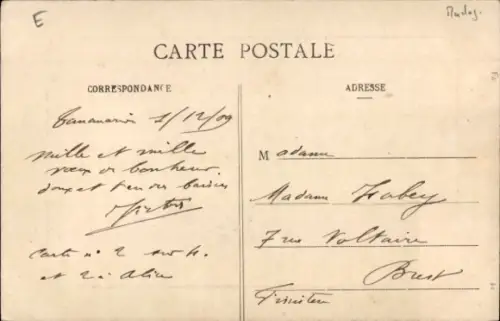 E
Madag.
CARTE POSTALE
CORRESPONDANCE
ADRESSE
Tananarive 1/12/09
Mille et mille
vœux de bonheur
doux et tendres baisers
Carte n° 2 sur 4.
et 2 à Alice
Madame
Madame
7 rue Voltaire
Brest
Finistère